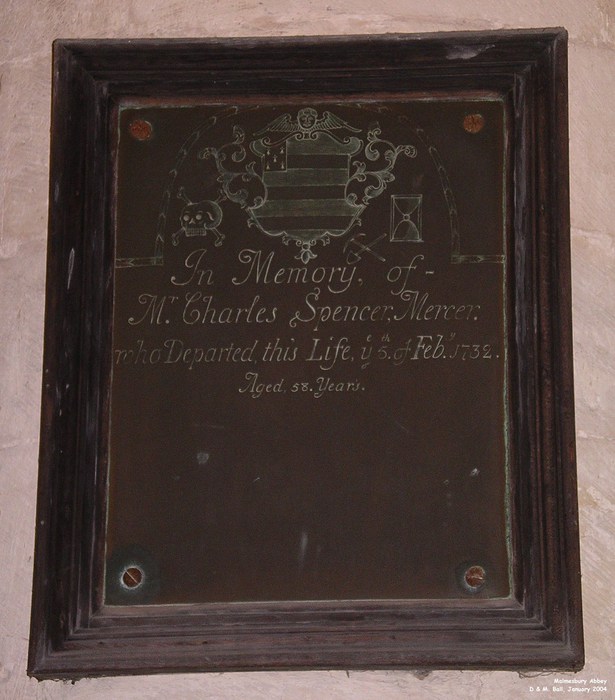 In Memory, of -
Mr. Charles Spencer, Mercer.
who Departed, this Life, ye 5th. of Feby. 1732.
Aged, 58. Years.
Malmesbury Abbey
D & M. Ball, January 2004